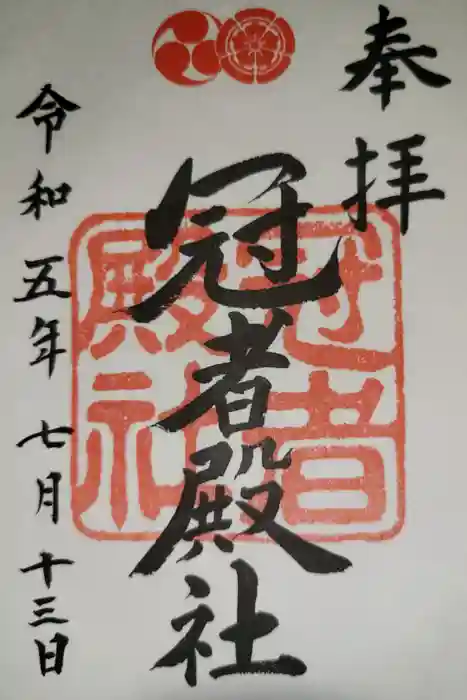 奉拝
冠者殿社
冠者
殿社
令和五年七月十三日